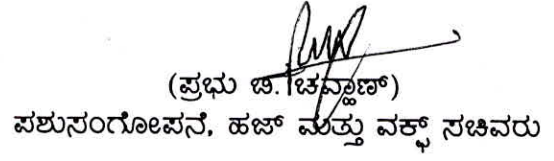 (ಪ್ರಭು ಬಿ. ಚವ್ಹಾಣ್)
ಪಶುಸಂಗೋಪನೆ, ಹಜ್ ಮತ್ತು ವಕ್ಫ್ ಸಚಿವರು